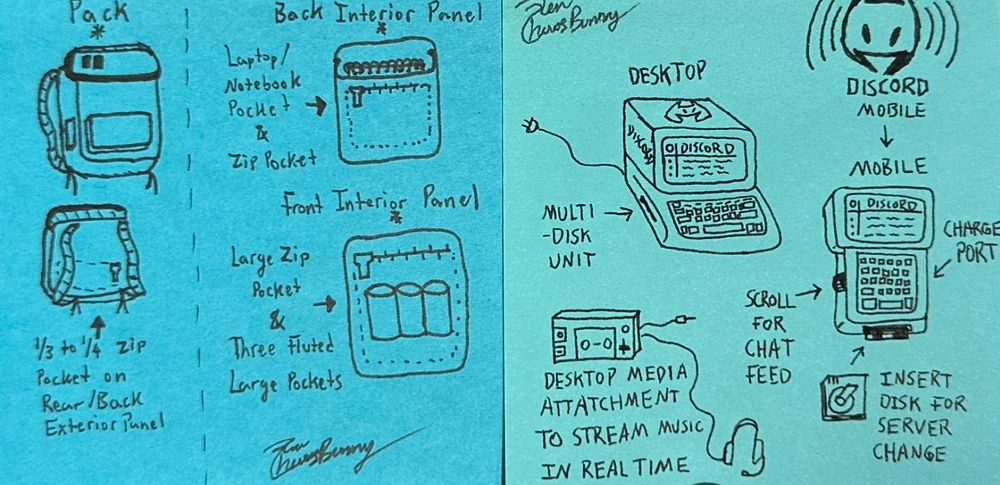 Pack
*
1/3 to 1/4 zip
Pocket on
Rear/Back
Exterior Panel
Back Interior Panel
*
Laptop/
Notebook
Pocket
&
Zip Pocket
Front Interior Panel
*
Large Zip
Pocket
&
Three Fluted
Large Pockets
ChaosBunny
ChaosBunny
DESKTOP
DISCORD
DISCORD
MULTI
-DISK
UNIT
DESKTOP MEDIA
ATTATCHMENT
TO STREAM MUSIC
IN REAL TIME
DISCORD
MOBILE
MOBILE
DISCORD
CHARGE
PORT
SCROLL
FOR
CHAT
FEED
INSERT
DISK FOR
SERVER
CHANGE